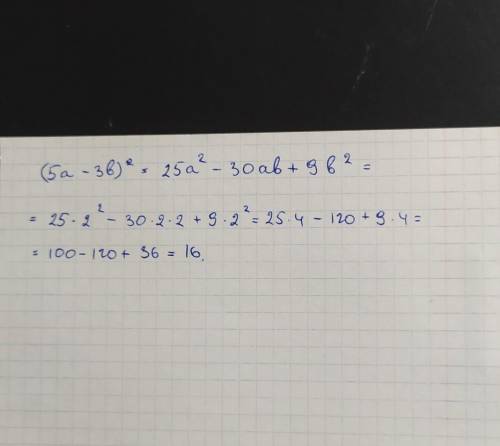 (5a - 3b)² = 25a² - 30ab + 9b² =
= 25 · 2² - 30 · 2 · 2 + 9 · 2² = 25 · 4 - 120 + 9 · 4 =
= 100 - 120 + 36 = 16.